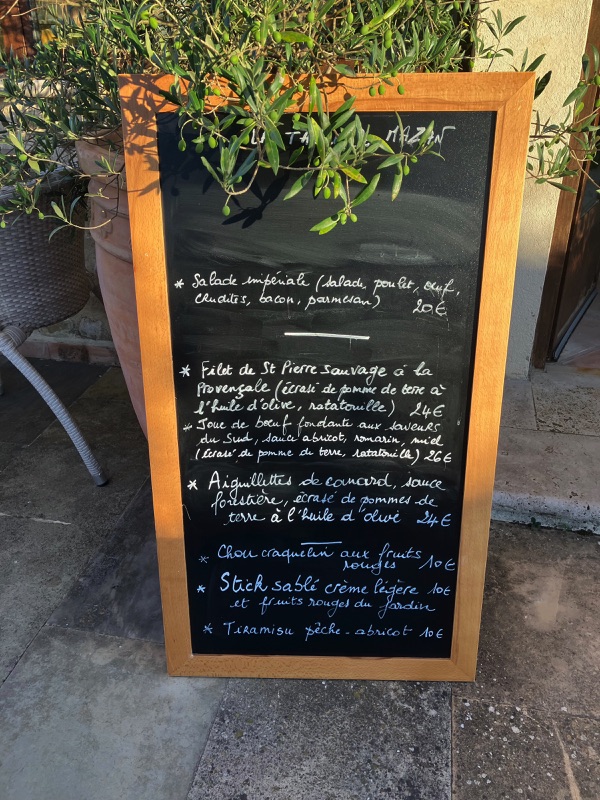 MAZAN
* Salade impériale (salade, poulet, œuf,
crudités, bacon, parmesan) 20€
* Filet de St Pierre sauvage à la
Provençale (écrasé de pomme de terre à
l'huile d'olive, ratatouille) 24€
* Joue de bœuf fondante aux saveurs
du Sud, sauce abricot, romarin, miel
(écrasé de pomme de terre, ratatouille) 26€
* Aiguillettes de canard, sauce
forestière, écrasé de pommes de
terre à l'huile d'olive 24€
* Chou craquelin aux fruits
rouges 10€
* Stick sablé crème légère 10€
et fruits rouges du jardin
* Tiramisu pêche-abricot 10€